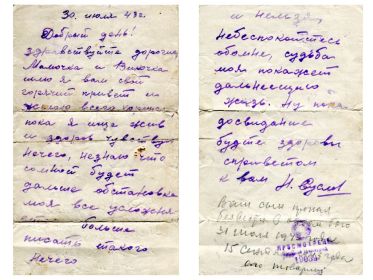 30. июля 43 г.
Добрый день!
здравствуйте дорогие
Мамочка и Вилочка
шлю я вам свой
горячий привет и
желаю всего хорошего
пока я ещё жив
и здоров чувствую
нечего, незнаю что
сомной будет
дальше обстановка
моя все усложня
ется больше
писать такого
нечего
и нельзя,
небеспокойтесь
обомне, судьба
моя покажет
дальнейшую
жизь. Ну пока
досвидание
будте здоровы
сприветом
к вам Н.
Ваш сын пропал
безвести
31 июля 1943
15
его товарищ